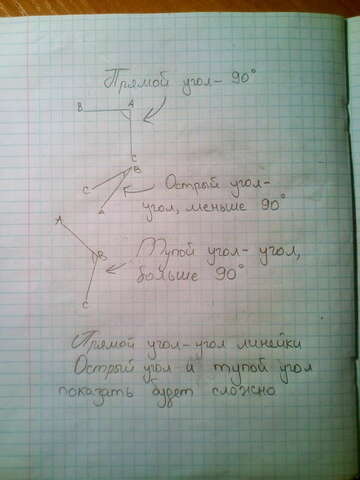 Прямой угол - 90°
B A
C
B
C
A
Острый угол-
угол, меньше 90°
A
B
C
Тупой угол- угол,
больше 90°
Прямой угол-угол линейки
Острый угол и тупой угол
показать будет сложно